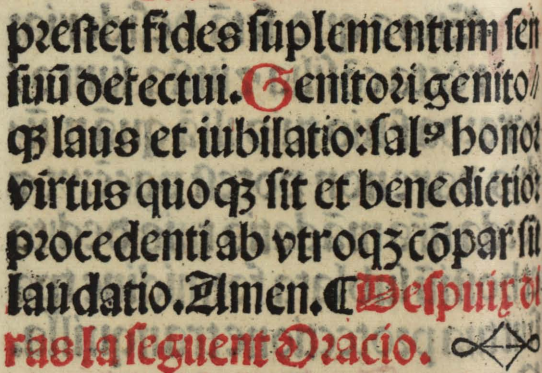 preſtet fides ſuplementum ſen
ſuū defectui. Genitori genito⸗
qꝫ laus et iubilatio: ſalꝰ honor
virtus quoqꝫ ſit et benedictio:
procedenti ab vtroqꝫ cōpar ſit
laudatio. Amen. ¶ Deſpuix di
ras la ſeguent Oracio.